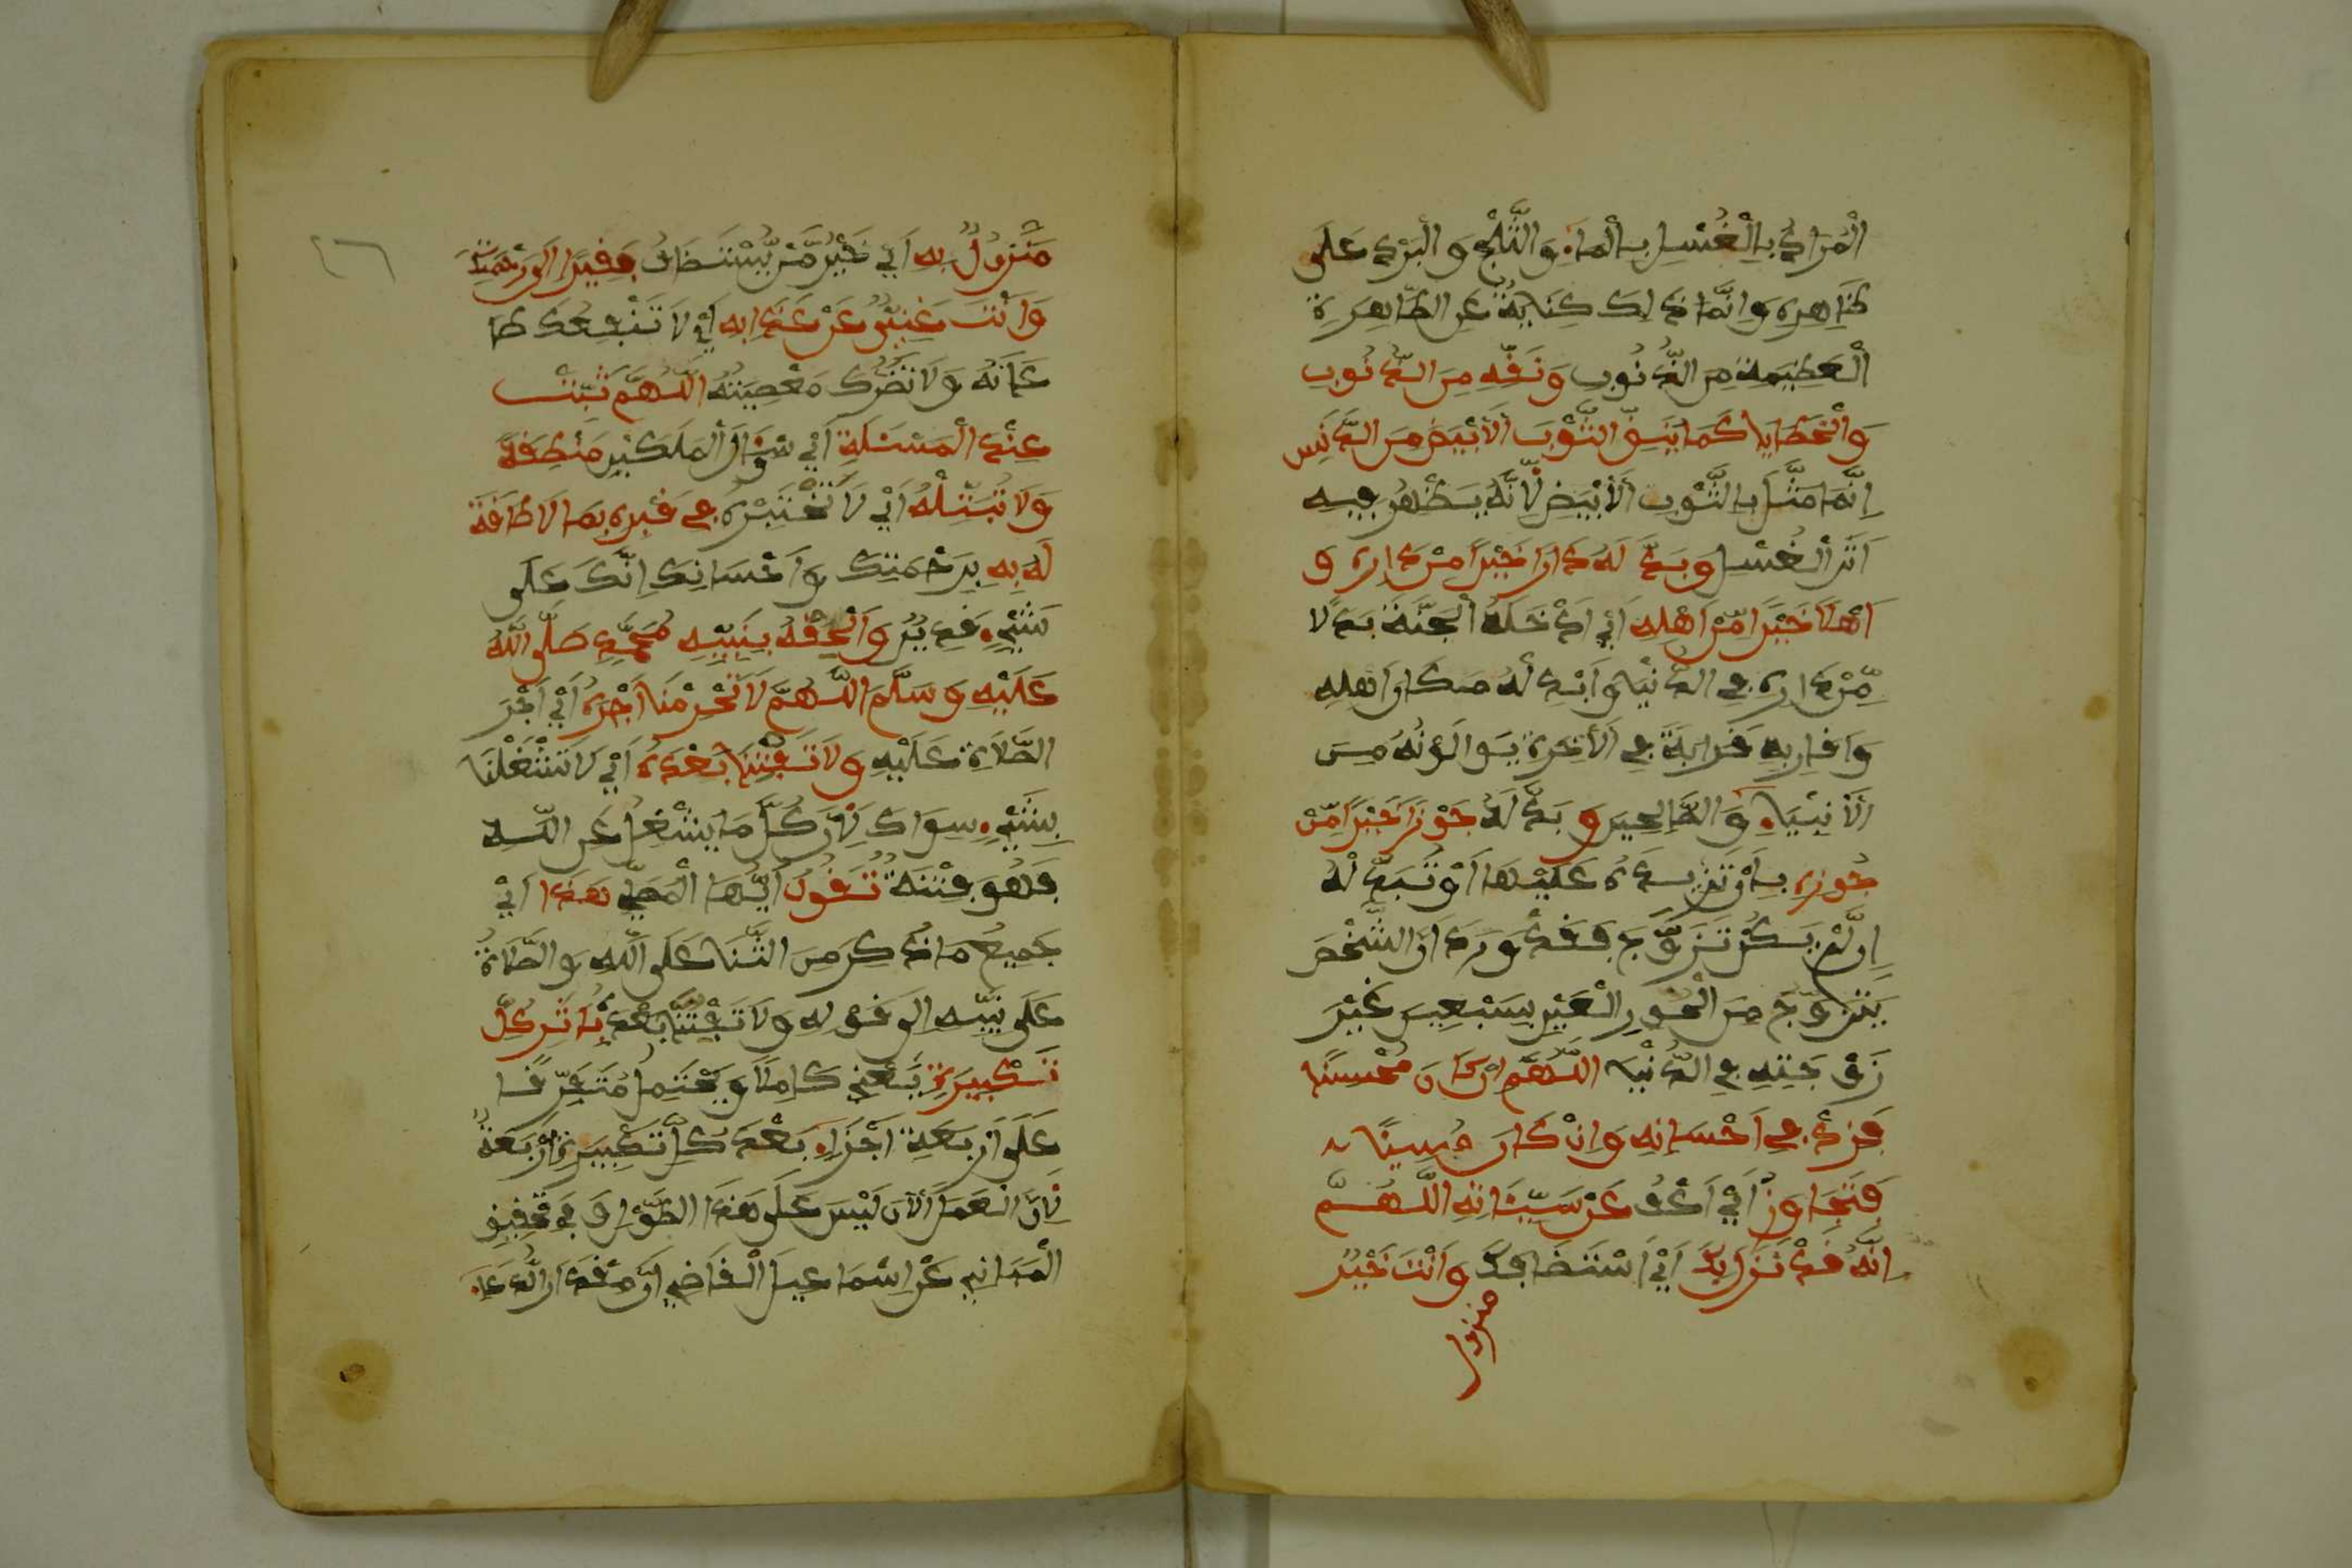 الْمُرَادُ بِالْغُسْلِ بِالْمَاءِ وَالثَّلْجِ وَالْبَرَدِ عَلَى
ظَاهِرِهِ وَإِنَّمَا ذَلِكَ كِنَايَةٌ عَنِ الطَّاهِرَةِ
الْعَظِيمَةِ مِنَ الذُّنُوبِ وَنَقِّهِ مِنَ الذُّنُوبِ
وَالْخَطَايَا كَمَا يُنَقَّى الثَّوْبُ الْأَبْيَضُ مِنَ الدَّنَسِ
إِنَّمَا مَثَّلَ بِالثَّوْبِ الْأَبْيَضِ لِأَنَّهُ يَظْهَرُ فِيهِ
أَثَرُ الْغُسْلِ وَبَدِّلْ لَهُ دَارًا خَيْرًا مِنْ دَارِهِ وَ
أَهْلًا خَيْرًا مِّنْ أَهْلِهِ أَيْ أَدْخِلْهُ الْجَنَّةَ بَدَلًا
مِّنْ دَارِهِ فِي الدُّنْيَا وَأَبْدِلْهُ مَكَانَ أَهْلِهِ
وَأَقَارِبِهِ قَرَابَةً فِي الْآخِرَةِ يُوَالُونَهُ مِنَ
الْأَنْبِيَاءِ وَالصَّالِحِينَ وَبَدِّلْ لَهُ جَوْزًا خَيْرًا مِّنْ
جَوْزِهِ بِأَنْ تَزِيدَهُ عَلَيْهَا أَوْ تُبَدِّلَهُ
إِن لَّمْ يَكُنْ تَزَوَّجَ فَقَدْ وَرَدَ أَنَّ الشَّخْصَ
يَتَزَوَّجُ مِنَ الْحُورِ الْعِينِ سَبْعِينَ غَيْرَ
زَوْجَتِهِ فِي الدُّنْيَا اللَّهُمَّ إِنْ كَانَ مُحْسِنًا
فَزِدْ فِي إِحْسَانِهِ وَإِنْ كَانَ مُسِيئًا
فَتَجَاوَزْ أَيْ أَعْفُ عَنْ سَيِّئَاتِهِ اللَّهُمَّ
إِنَّهُ قَدْ نَزَلَ بِكَ أَيْ اسْتَضَافَكَ وَأَنْتَ خَيْرُ
منزول
مَنْزُولٌ بِهِ أَيْ خَيْرُ مَّنْ يُّسْتَضَافُ فَقِيرًا إِلَى رَحْمَتِكَ
وَأَنْتَ غَنِيٌّ عَنْ عَذَابِهِ أَيْ لَا تَنْفَعُكَ طَا
عَاتُهُ وَلَا تَضُرُّكَ مَعْصِيَتُهُ اللَّهُمَّ ثَبِّتْ
عِنْدَ الْمَسْئَلَةِ أَيْ سُؤَالِ الْمَلَكَيْنِ مَنْطِقَهُ
وَلَا تَبْتَلِهِ أَيْ لَا تَخْتَبِرْهُ فِي قَبْرِهِ بِمَا لَا طَاقَةَ
لَهُ بِهِ بِرَحْمَتِكَ وَإِحْسَانِكَ إِنَّكَ عَلَى
شَيْءٍ قَدِيرٌ وَأَلْحِقْهُ بِنَبِيِّهِ مُحَمَّدٍ صَلَّى اللَّهُ
عَلَيْهِ وَسَلَّمَ اللَّهُمَّ لَا تَحْرِمْنَا أَجْرَهُ أَيْ أَجْرَ
الصَّلَاةِ عَلَيْهِ وَلَا تَفْتِنَّا بَعْدَهُ أَيْ لَا تَشْغَلْنَا
بِشَيْءٍ سِوَاكَ لِأَنَّ كُلَّ مَا يَشْغَلُ عَنِ اللَّهِ
فَهُوَ فِتْنَةٌ تَقُولُ أَيُّهَا الْمُصَلِّي هَذَا أَيْ
جَمِيعُ مَا ذُكِرَ مِنَ الثَّنَا عَلَى اللَّهِ وَالصَّلَاةُ
عَلَى نَبِيِّهِ إِلَى قَوْلِهِ وَلَا تَفْتِنَّا بَعْدَهُ بِأَثَرِ كُلِّ
تَكْبِيرَةٍ يَعْنِي كَامِلًا وَيَحْتَمِلُ مُتَفَرِّقًا
عَلَى أَرْبَعَةِ أَجْزَاءٍ بَعْدَ كُلِّ تَكْبِيرَةٍ أَرْبَعَةٌ
لِأَنَّ الْعَمَلَ الْآنَ لَيْسَ عَلَى هَذَا الطُّولِ وَفِي تَحْقِيقِ
الْمَبَانِي عَنْ إِسْمَاعِيلَ الْقَاضِي أَنَّ مِقْدَارَ الدُّعَاءِ